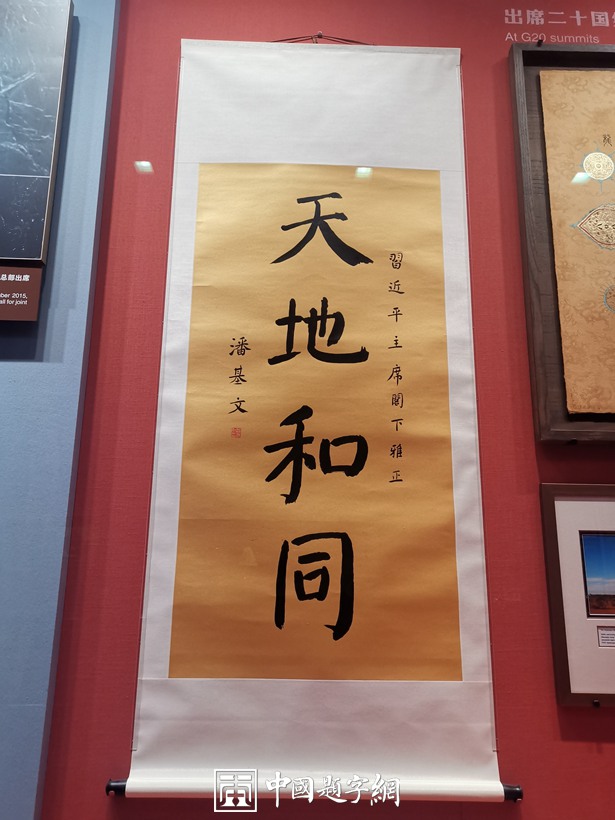 出席二十国
At G20 summits
习近平主席阁下雅正
天地和同
潘基文
总部出席
ber 2015,
all for joint
中國题字網